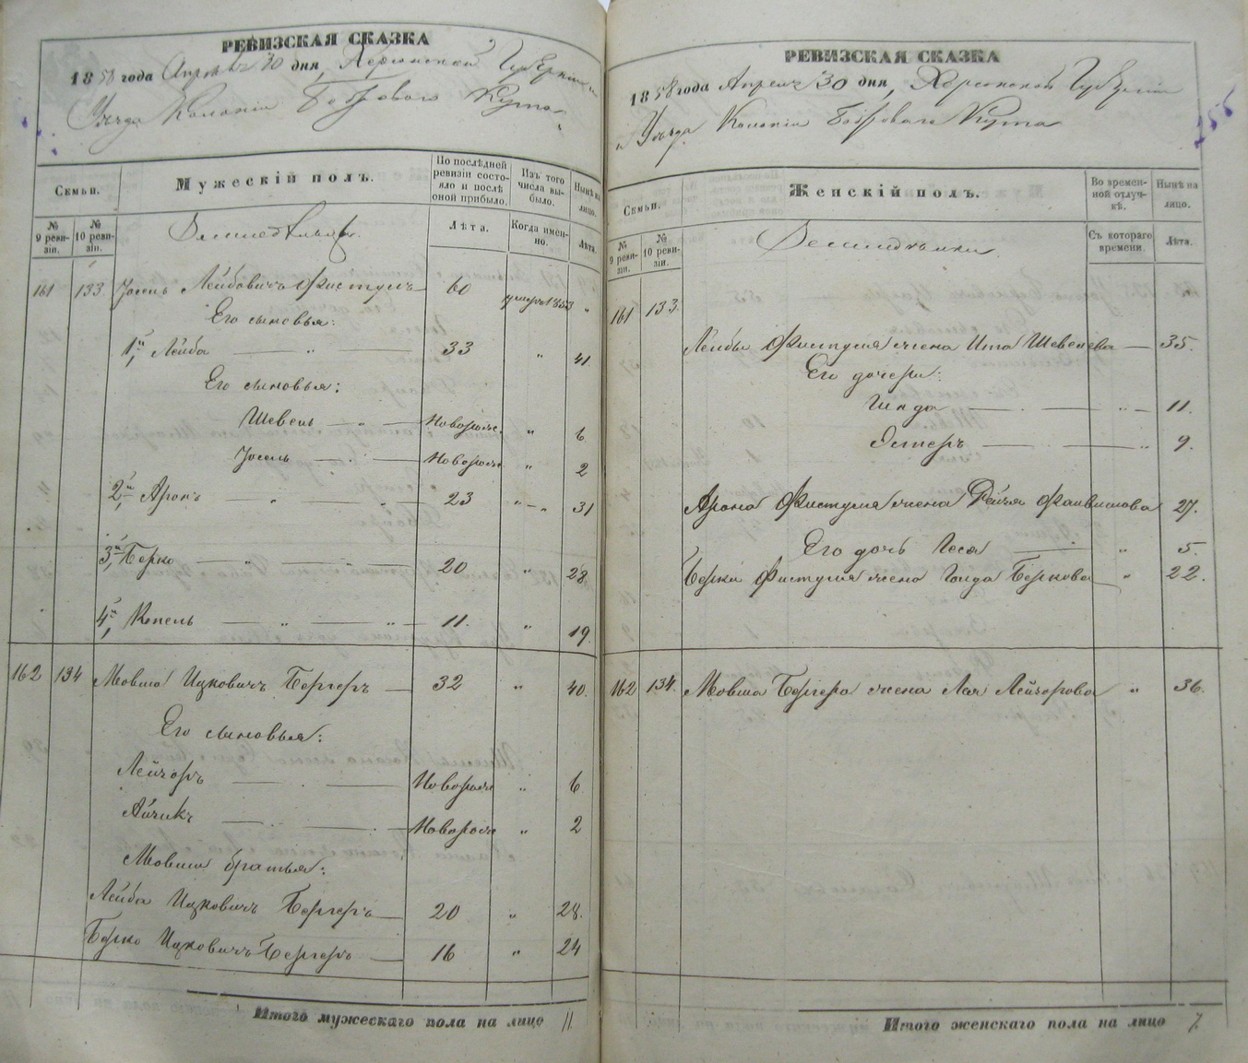 РЕВИЗСКАЯ СКАЗКА
1858 года Апреля 30 дня, Херсонской Губернии
Уезда Колоніи Боброваго Кута
Семьи.
Мужескій полъ.
По послѣдней ревизіи состояло и послѣ оной прибыло.
Изъ того числа выбыло.
Нынѣ на лицо.
№ 9 ревизіи.
№ 10 ревизіи.
Лѣта.
Когда именно.
Лѣта.
Земледѣльцы.
161 133 Іосель Лейбовичъ Фистулъ 60 умеръ 1853 "
Его сыновья:
1й, Лейба — " — 33 " 41.
Его сыновья:
Шевель — " — Новорожд. " 6
Іосель — — Новорожд " 2
2й, Аронъ — " — " — 23 " — " 31
3й, Берко — " — " — 20 " 28.
4й, Копель — " — " — 11. " 19.
162 134 Мовша Ицковичъ Бергеръ — 32 " 40.
Его сыновья:
Лейзоръ — — Новорожд " 6
Айзикъ — — Новорожд " 2
Мовши братья:
Лейба Ицковичъ Бергеръ — 20 " 28.
Берко Ицковичъ Бергеръ — 16 " 24
Итого мужескаго пола на лицо 11.
РЕВИЗСКАЯ СКАЗКА
1858 года Апреля 30 дня, Херсонской Губерніи
Уезда Колоніи Боброваго Кута
Семьи.
Женскій полъ.
Во временной отлучкѣ.
Нынѣ на лицо.
№ 9 ревизіи.
№ 10 ревизіи.
Съ котораго времени.
Лѣта.
161 133.
Лейбы Фистула жена Ита Шевелева — 35.
Его дочери:
Гинда — — " — 11.
Эстеръ — — " 9.
Арона Фистула жена Фейвишова 27.
Его дочь Песя — " 5.
Берки Фистула жена Голда Беркова " 22.
162 134. Мовши Бергера жена Лея Лейзорова " 36.
Итого женскаго пола на лицо 7.